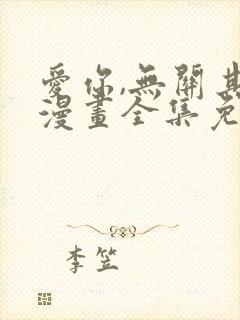 愛你,無關其
漫畫全集免
李笠